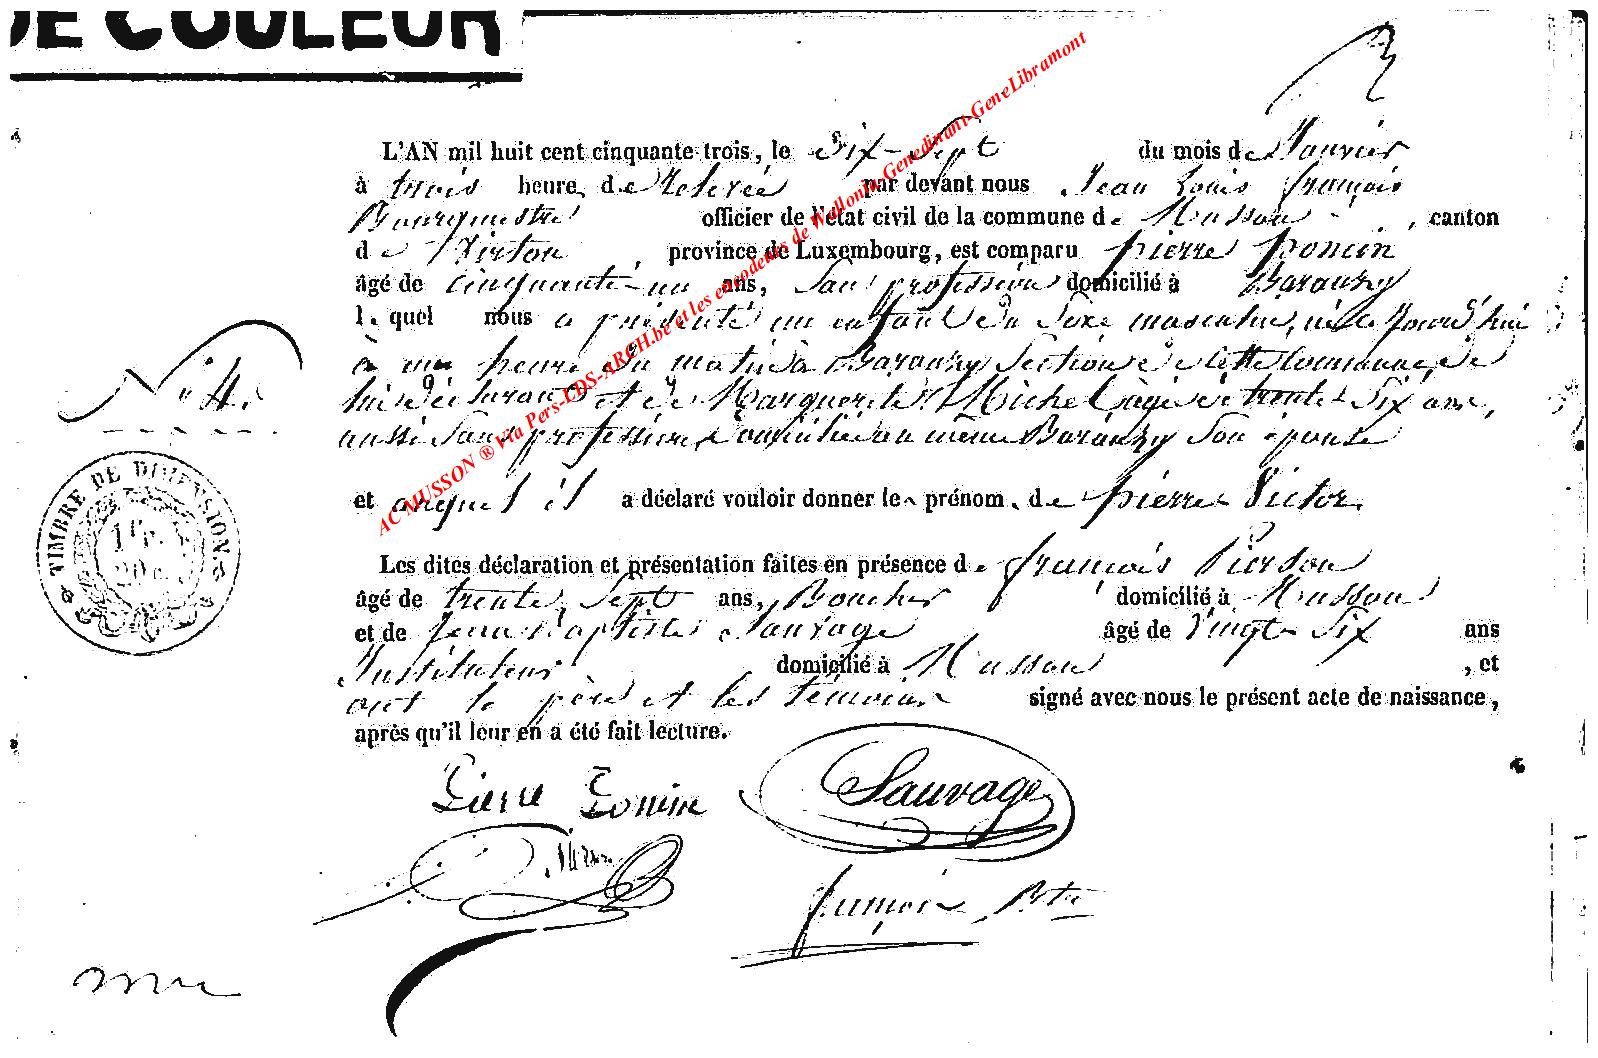 DE COULEUR
L'AN mil huit cent cinquante-trois, le Dix-Sept du mois de Janvier
à trois heure, de Relevée par devant nous Jean Louis françois
Bourgmestre officier de l'état civil de la commune de Musson, canton
de Virton, province de Luxembourg, est comparu pierre poncin
âgé de cinquante-un ans, Sans profession domicilié à Baranzy
l. quel nous a présenté un enfant du Sexe masculin, né ce Jourd'hui
à une heure du matin à Baranzy Section de cette Commune, de
lui déclarant et de Marguerite Michel âgée de trente Six ans,
aussi Sans profession domiciliée au même Baranzy Son épouse
N° 4.
et auquel il a déclaré vouloir donner le prénom. de pierre Victor
Les dites déclaration et présentation faites en présence de françois Pierson
âgé de trente Sept ans, Boucher domicilié à Musson
et de Jean Baptiste Sauvage âgé de Vingt Six ans
Instituteur domicilié à Musson, et
ont le père et les témoins signé avec nous le présent acte de naissance,
après qu'il leur en a été fait lecture.
TIMBRE DE DIMENSION.
1 fr.
20 c.
Pierre Poncin Sauvage
Pierson
françois Btre
AC MUSSON ® Via Pers-LDS-ARCH.be et les encodeurs de Wallonia-Genedinant-GeneLibramont